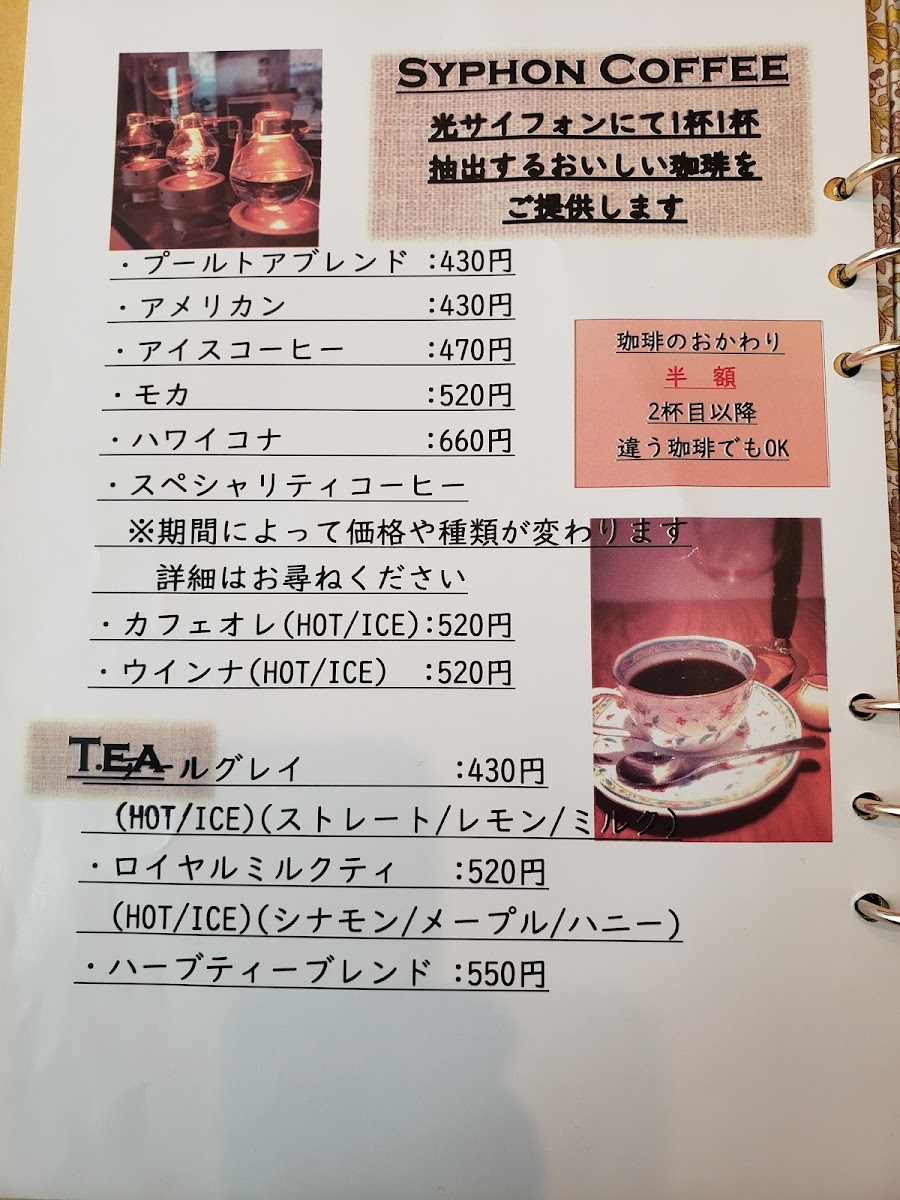 SYPHON COFFEE
光サイフォンにて1杯1杯
抽出するおいしい珈琲を
ご提供します
・プールトアブレンド :430円
・アメリカン :430円
・アイスコーヒー :470円
・モカ :520円
・ハワイコナ :660円
・スペシャリティコーヒー
※期間によって価格や種類が変わります
詳細はお尋ねください
・カフェオレ(HOT/ICE):520円
・ウインナ(HOT/ICE) :520円
珈琲のおかわり
半 額
2杯目以降
違う珈琲でもOK
TEA
ールグレイ :430円
(HOT/ICE)(ストレート/レモン/ミルク)
・ロイヤルミルクティ :520円
(HOT/ICE)(シナモン/メープル/ハニー)
・ハーブティーブレンド :550円